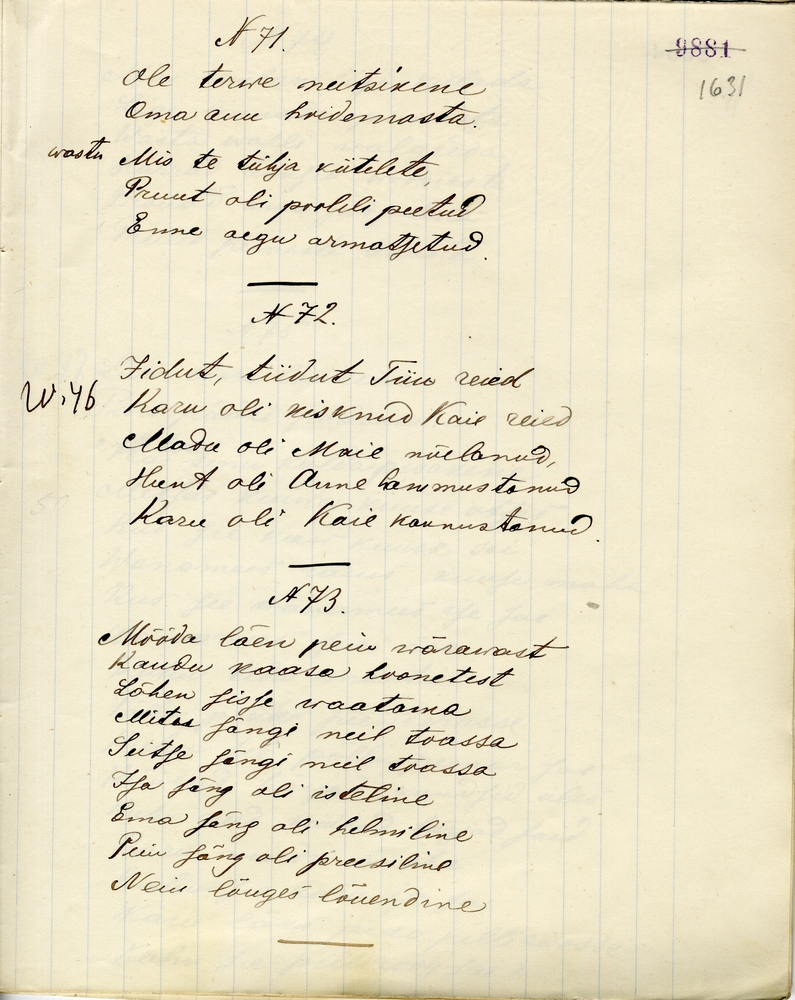 N 71.
9881
1631
Ole terwe neitsikene
Oma auu hoidemasta.
wastu Mis te tühja kiitelete,
Pruut oli poolili peetud
Enne aegu armatsetud.
N 72.
Tidut, tiidut Tiiu reied
W. 46 Karu oli kisknud Kaie reied
Madu oli Maie nõelanud,
Hunt oli Anne hammustanud
Karu oli Kaie kannustanud.
N 73.
Mööda läen peiu wärawast
Kaudu kaasa hoonetest
Lähen sisse waatama
Mitas sängi neil toassa
Seitse sängi neil toassa
Isa säng oli isteline
Ema säng oli helmiline
Peiu säng oli preesiline
Neiu lõuges lõuendine